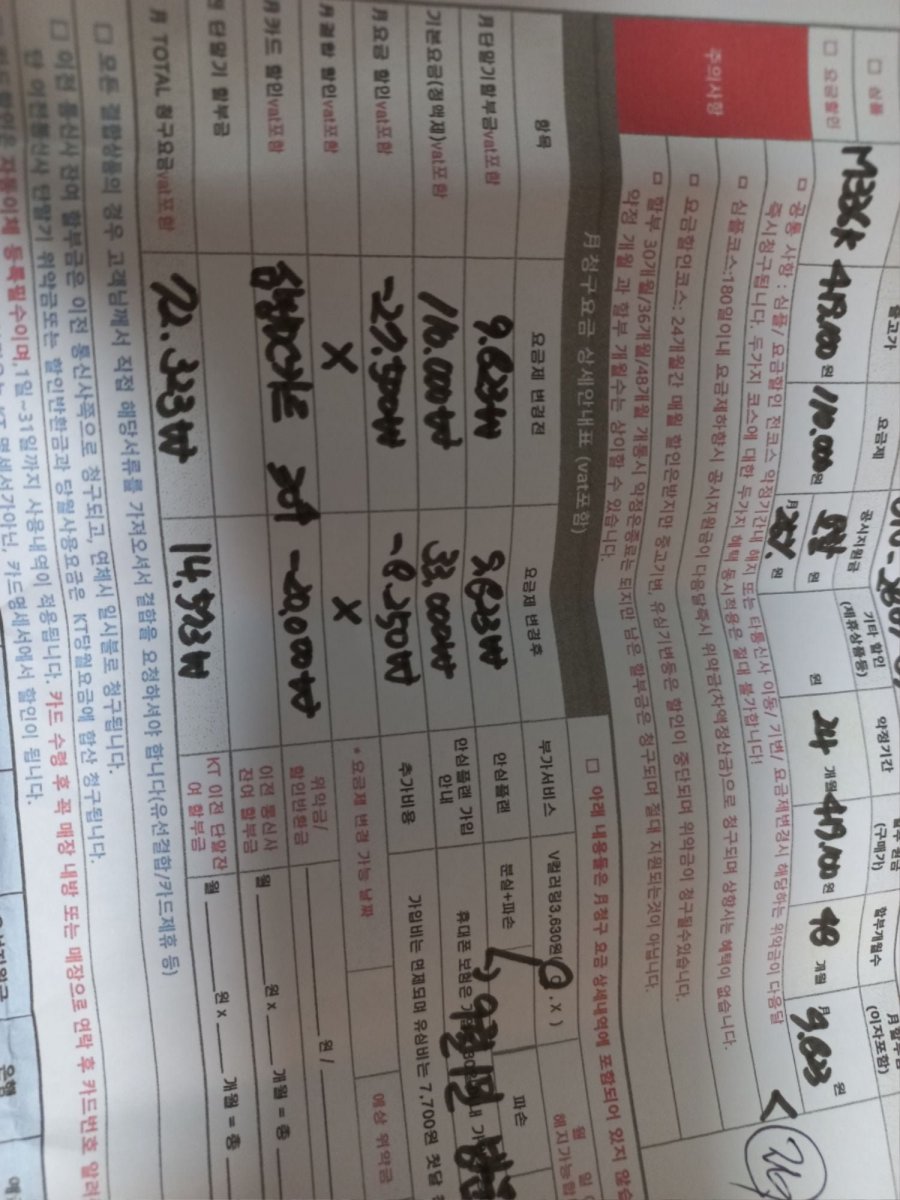 출고가 요금제 공시지원금 기타 할인 (제휴상품등) 약정기간 (구매가) 할부개월수 (이자포함)
□ 심플
□ 요금할인
419.000원 110.000원 원 월 원 원 24 개월 419.000원 48 개월 월 9.623 원
주의사항
□ 공통 사항 : 심플/ 요금할인 전코스 약정기간내 해지 또는 타통신사 이동/ 기변/ 요금제변경시 해당하는 위약금이 다음달
즉시청구됩니다. 두가지 코스에 대한 두가지 혜택 동시적용은 절대 불가합니다!
□ 심플코스:180일이내 요금제하향시 공시지원금이 다음달즉시 위약금(차액정산금)으로 청구되며 상향시는 혜택이 없습니다.
□ 요금할인코스: 24개월간 매월 할인은받지만 중고기변, 유심기변등은 할인이 중단되며 위약금이 청구될수있습니다.
□ 할부 30개월/36개월/48개월 개통시 약정은종료는 되지만 남은 할부금은 청구되며 절대 지원되는것이 아닙니다.
약정 개월 과 할부 개월수는 상이할 수 있습니다.
月청구요금 상세안내표 (vat포함)
항목 요금제 변경전 요금제 변경후
月단말기할부금vat포함 9.623₩ 9.623₩
기본요금(정액제)vat포함 110.000₩ 33.000₩
月요금 할인vat포함 -27.500₩ -8.250₩
月결합 할인vat포함 X X
月카드 할인vat포함 삼성카드 30만 -20,000₩
단말기 할부금
月 TOTAL 청구요금vat포함 72.323₩ 14.373₩
□ 아래 내용들은 月청구 요금 상세내역에 포함되어 있지 않습
부가서비스 V컬러링3,630원( O . X ) 월 일 해지가능
안심플랜 분실+파손 파손
안심플랜 가입 안내 휴대폰 보험은
추가비용 가입비는 면제되며 유심비는 7,700원 첫달
* 요금제 변경 가능 날짜 예상 위약금
위약금/할인반환금 원 /
이전 통신사 잔여 할부금 월 원 x 개월 = 총
KT 이전 단말잔여 할부금 월 원 x 개월 = 총
□ 모든 결합상품의 경우 고객님께서 직접 해당서류를 가져오셔서 결합을 요청하셔야 합니다(유선결합/카드제휴 등)
□ 이전 통신사 잔여 할부금은 이전 통신사쪽으로 청구되고, 연체시 일시불로 청구됩니다.
□ 이전통신사 단말기 위약금또는 할인반환금과 당월사용요금은 KT당월요금에 합산 청구됩니다.
자동이체 등록필수이며,1일~31일까지 사용내역이 적용됩니다. 카드 수령 후 꼭 매장 내방 또는 매장으로 연락 후 카드번호 알려
카드명세서에서 할인이 됩니다.
은행